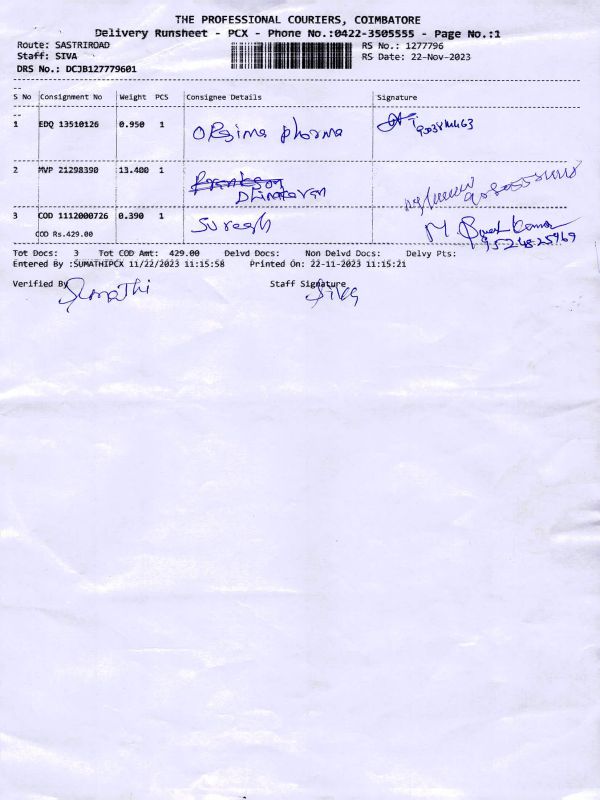 THE PROFESSIONAL COURIERS, COIMBATORE
Delivery Runsheet - PCX - Phone No.:0422-3505555 - Page No.:1
Route: SASTRIROAD RS No.: 1277796
Staff: SIVA RS Date: 22-Nov-2023
DRS No.: DCJB127779601
S No Consignment No Weight PCS Consignee Details Signature
1 EDQ 13510126 0.950 1 Pharma
2 MVP 21298390 13.400 1
Dhinakaran
3 COD 1112000726 0.390 1 Suresh M
COD Rs.429.00
Tot Docs: 3 Tot COD Amt: 429.00 Delvd Docs: Non Delvd Docs: Delvy Pts:
Entered By :SUMATHIPCX 11/22/2023 11:15:58 Printed On: 22-11-2023 11:15:21
Verified By Sumathi Staff Signature Siva